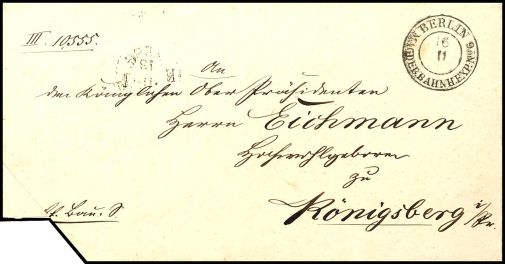 III. 10,555.
BERLIN
16
11
An
den Königlichen Ober Präsidenten
Herrn Eichmann
Hochwohlgeboren
zu
Königsberg i/Pr.
Bau. S.